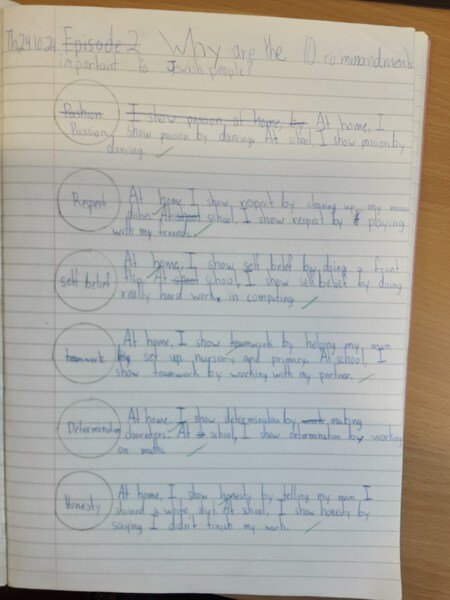 Th 24.10.24 Episode 2 Why are the 10 commandments
important to Jewish people?
Pashion
Passion
I show passion, at home, by At home, I
show passion by dancing. At school, I show passion by
dancing.
Respect
At home, I show respect by cleaning up my moms
dishes. At school, I show respect by playing
with my friends.
self belief
At home, I show self belief by doing a front
flip. At school, I show self belief by doing
really hard work in computing.
teamwork
At home, I show teamwork by helping my mom
by set up nursery and primary. At school, I
show teamwork by working with my partner.
Determination
At home, I show determination by work making
characters. At school, I show determination by working
on maths.
Honesty
At home, I show honesty by telling my mom I
stained a white shirt. At school, I show honesty by
saying I didn't finish my work.